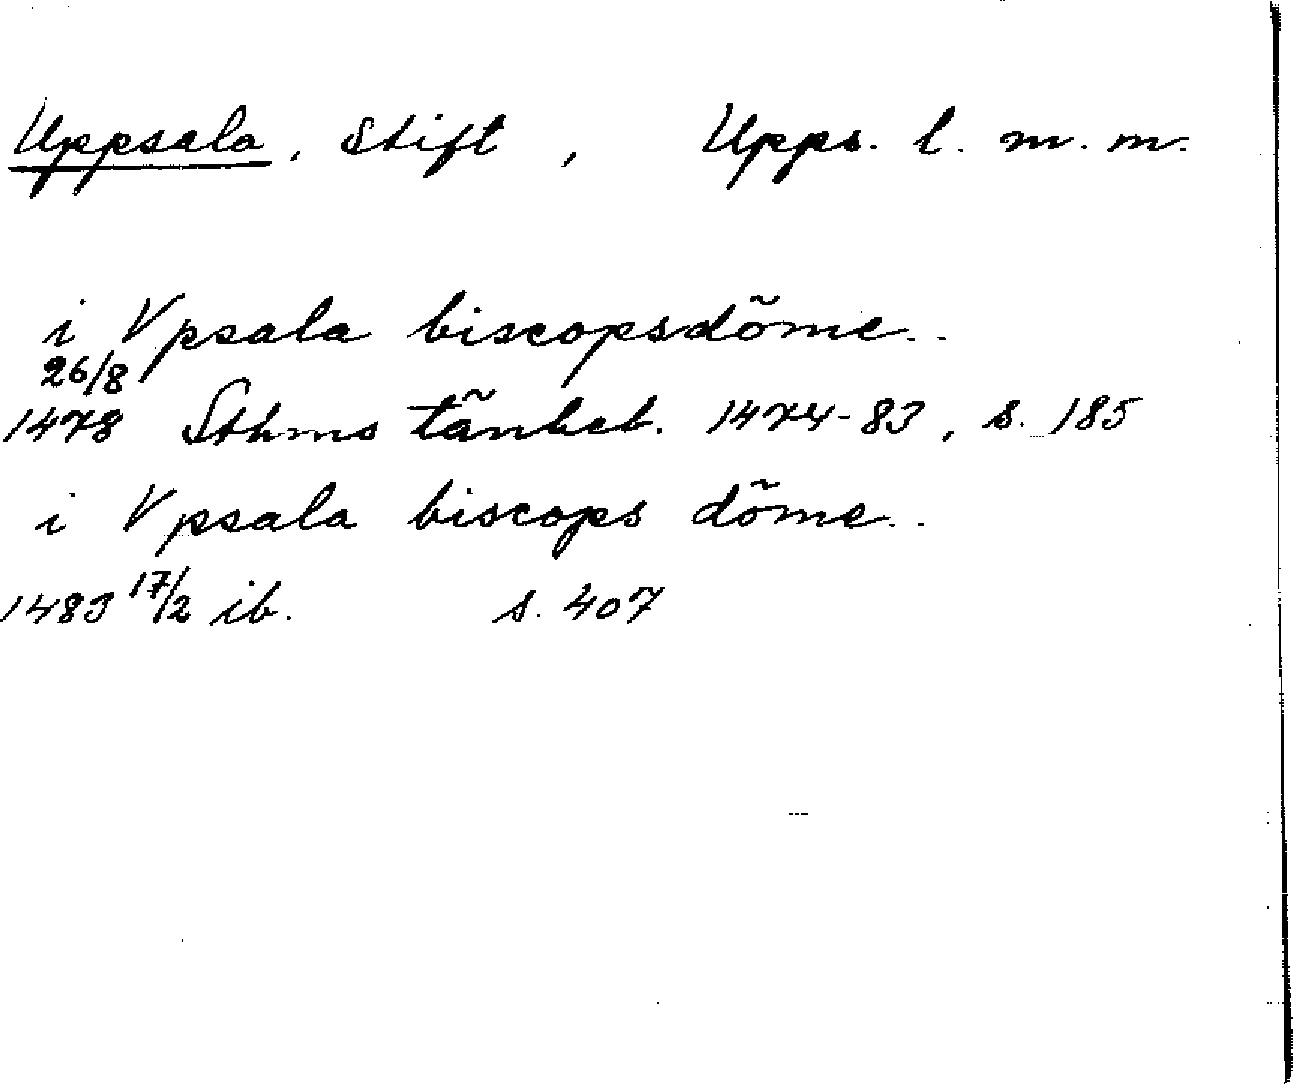 Uppsala, Stift, Upps. l. m. m.
i Vpsala biscopsdõme..
26/8
1478 Sthms tãnkeb. 1474-83, s. 185
i Vpsala biscops dõme..
1483 17/2 ib. s. 407